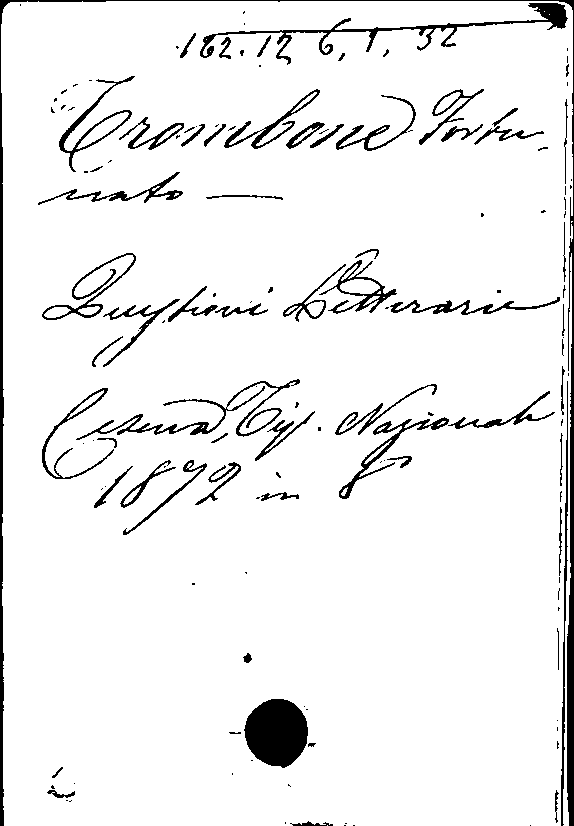 162.12 6, 1, 32
Trombone Fortu-
nato —
Questioni Letterarie
Cesena, Tip. Nazionale
1872 in 8°